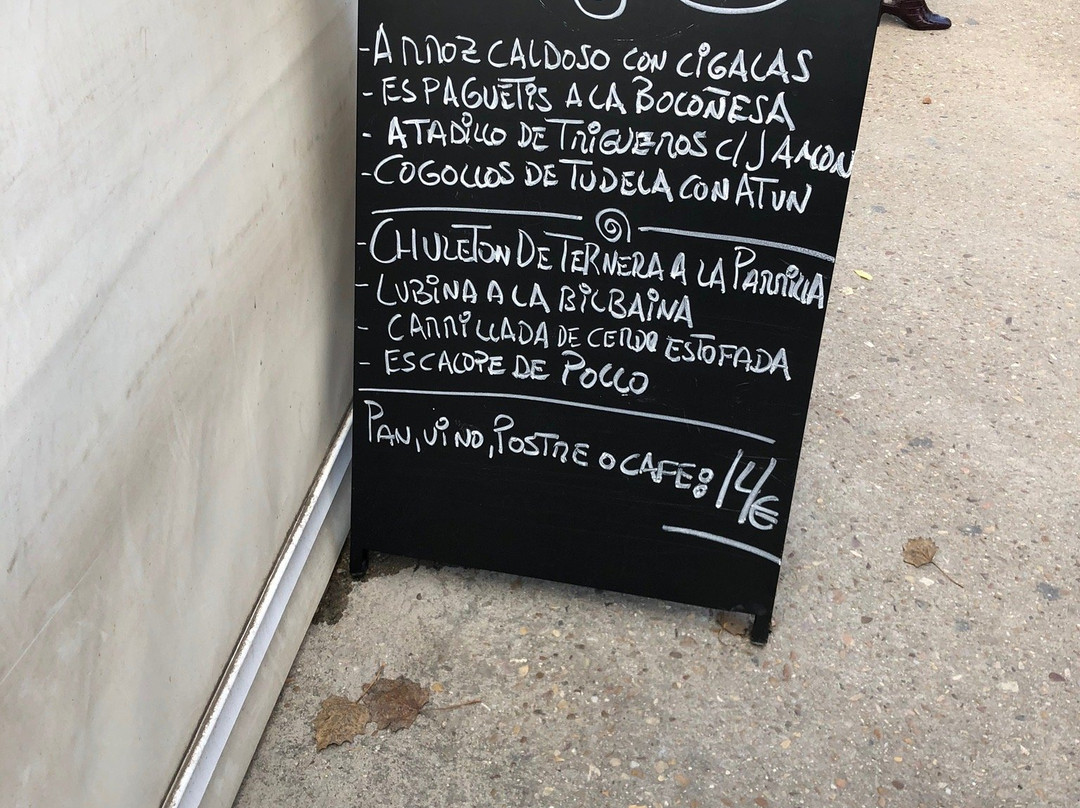 -ARROZ CALDOSO CON CIGALAS
-ESPAGUETIS A LA BOLOÑESA
- ATADILLO DE TRIGUEROS C/JAMON
-COGOLLOS DE TUDELA CON ATUN
-CHULETON DE TERNERA A LA PARRILLA
- LUBINA A LA BILBAINA
- CARRILLADA DE CERDO ESTOFADA
- ESCALOPE DE POLLO
PAN, VINO, POSTRE O CAFE: 14€